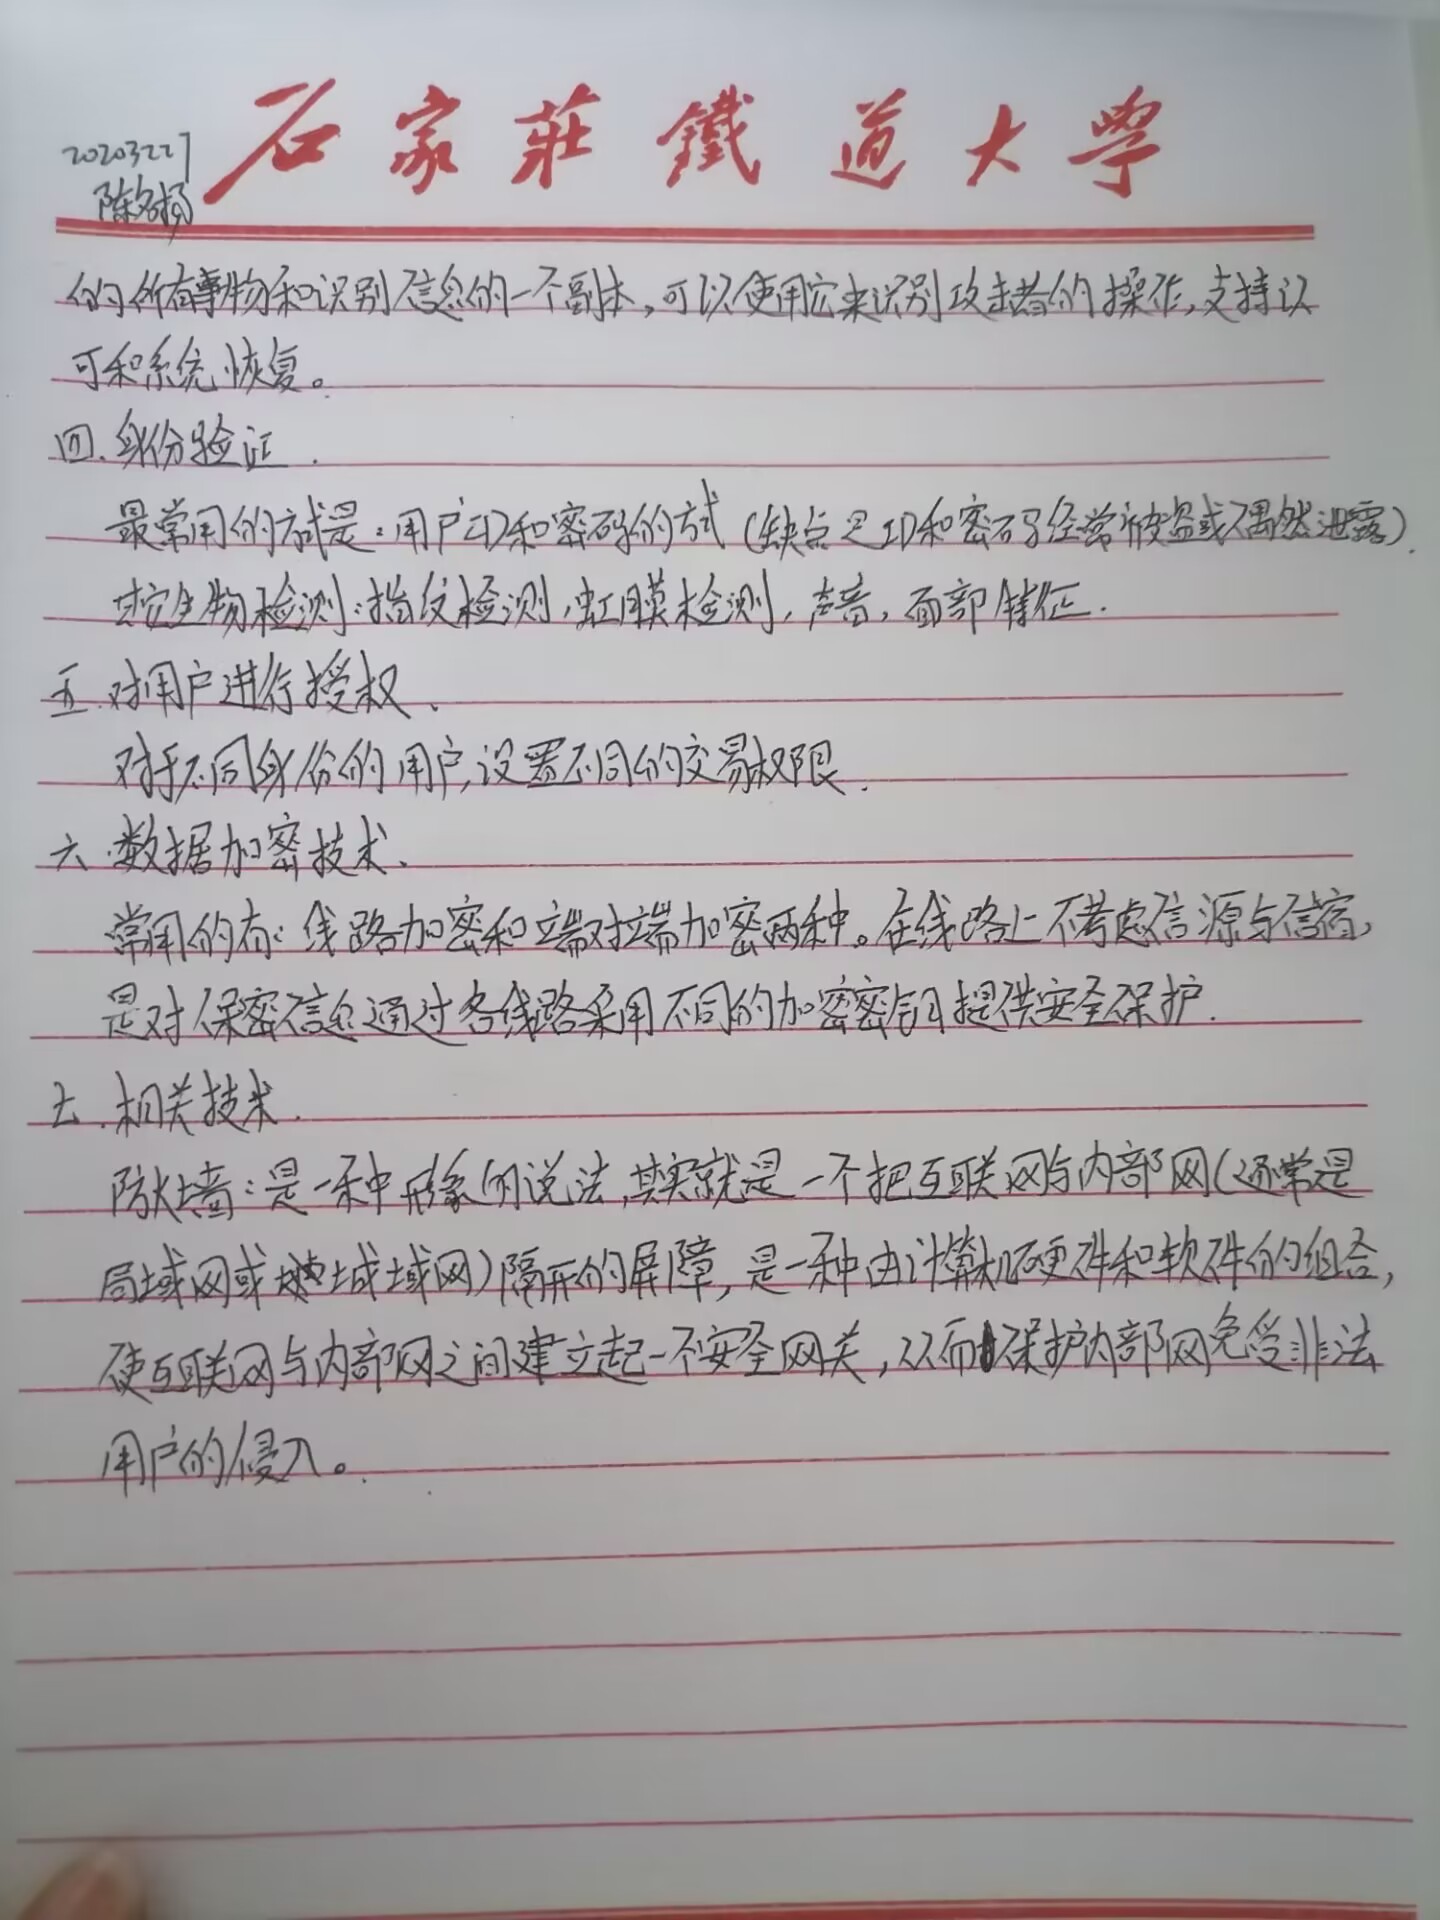 石家莊鐵道大學
20203227
陈名扬
的所有事物和识别信息的一个副本,可以使用它来识别攻击者的操作,支持认
可和系统恢复。
四.身份验证.
最常用的方式是:用户ID和密码的方式(缺点是ID和密码经常被盗或偶然泄露).
其它生物检测:指纹检测,虹膜检测,声音,面部特征.
五.对用户进行授权.
对于不同身份的用户,设置不同的交易权限.
六.数据加密技术.
常用的有:线路加密和端对端加密两种。在线路上不考虑信源与信宿,
是对保密信息通过各线路采用不同的加密密钥提供安全保护.
七.相关技术.
防火墙:是一种形象的说法,其实就是一个把互联网与内部网(通常是
局域网或城域网)隔开的屏障,是一种由计算机硬件和软件的组合,
使互联网与内部网之间建立起一个安全网关,从而保护内部网免受非法
用户的侵入。